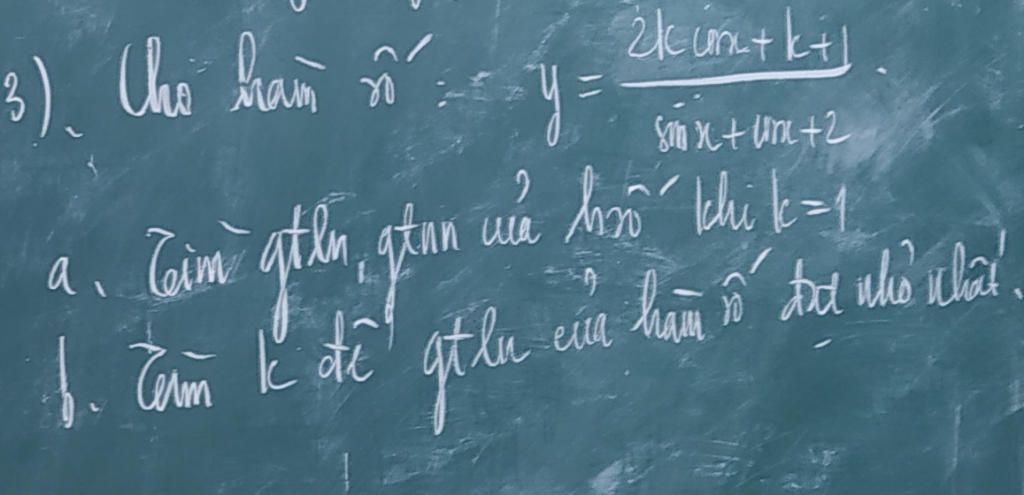 3). Cho hàm số : y = \frac{2k cosx + k + 1}{sinx + cosx + 2}.
a. Tìm gtln, gtnn của hsố khi k = 1
b. Tìm k để gtln của hàm số đạt nhỏ nhất.